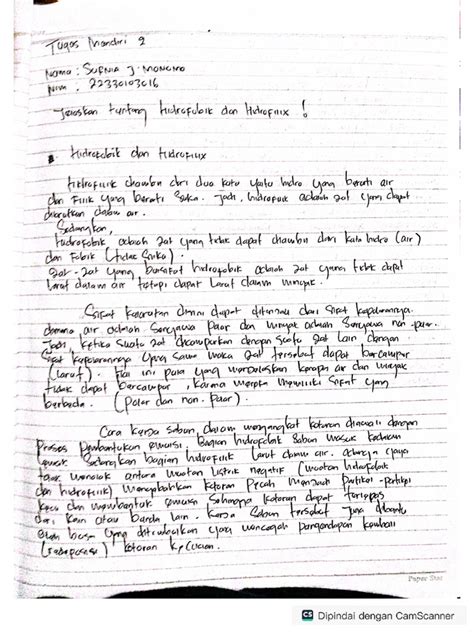 Tugas Mandiri 2
Nama : SUFNIA J. MONOMO
Nim : 22330103016
Jelaskan tentang Hidrofobik dan Hidrofilix !
Hidrofobik dan Hidrofilix
Hidrofilik diambil dari dua kata yaitu hidro yang berati air
dan Filik yang berati Suka. Jadi, hidrofilik adalah zat yang dapat
dilarutkan dalam air.
Sedangkan,
hidrofobik adalah zat yang tidak dapat diambil dari kata hidro (air)
dan Fobik (tidak Suka).
Zat-zat yang bersifat hidrofobik adalah zat yang tidak dapat
larut dalam air tetapi dapat larut dalam minyak.
Sifat kelarutan dapat ditentukan dari sifat kepolarannya.
dimana air adalah Senyawa Polar dan minyak adalah Senyawa non-polar.
Jadi ketika suatu zat dicampurkan dengan suatu zat lain dengan
Sifat kepolarannya yang sama maka zat tersebut dapat bercampur
(larut). Hal ini pula yang menjelaskan kenapa air dan minyak
tidak dapat bercampur, karena mereka memiliki sifat yang
berbeda. (Polar dan non-Polar).
Cara kerja sabun, dalam mengangkat kotoran diawali dengan
Proses Pembentukan emulsi, bagian hidrofobik Sabun masuk kedalam
Sedangkan bagian hidrofilik larut dalam air. adanya gaya
tolak menolak antara muatan listrik negatif (muatan hidrofobik
dan hidrofilik) menyebabkan kotoran Pecah menjadi Partikel-partikel
kecil dan membentuk emulsi sehingga kotoran dapat terlepas
dari kain atau benda lain. Kerja Sabun tersebut juga dibantu
oleh busa yang ditimbulkan yang mencegah pengendapan kembali
(redeposisi) kotoran
Paper Star
CS Dipindai dengan CamScanner